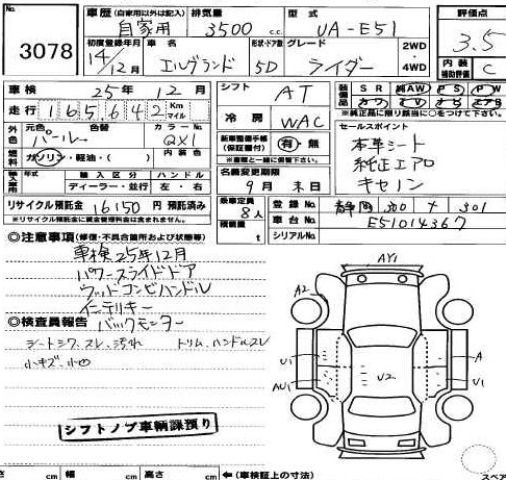 No. 3078
車歴 (自家用以外は記入) 自家用
排気量 3500 c.c.
型式 UA-E51
評価点 3.5
内装補助評価 C
初度登録年月 14/12月
車名 エルグランド
形状・ドア数 5D
グレード ライダー
2WD・4WD
車検 25年12月
シフト AT
装備品 SR AW PS PW
カワ TV ナビ エアB
※純正品に限り該当に○をつけて下さい。
走行 165642 Km マイル
冷房 WAC
外色 元色 パール 色替
カラーNo. QX1
燃料 ガソリン・軽油・( )
内装色
新車整備手帳 (保証書付) 有・無
※書類と一緒に御提下さい。
セールスポイント
本革シート
純正エアロ
キセノン
輸入車 年式 輸入区分 ハンドル
ディーラー・並行 左・右
名義変更期限 9月末日
リサイクル預託金 16150円 預託済み
※リサイクル預託金に資金管理料金は含まれません。
乗車定員 8人
積載量 t
登録No. 静岡 300 ナ 301
車台No. E51014367
シリアルNo.
◎注意事項 (修復・不具合箇所および状態等)
車検25年12月
パワースライドドア
ウッドコンビハンドル
インテリキー
バックモニター
◎検査員報告
シートシワ、スレ、汚れ トリム、ハンドルスレ
小キズ、小凹
AY1
A2
U1
AU1
U2
A
U1
シフトノブ車輌課預り
さ cm 幅 cm 高さ cm ←(車検証上の寸法)
スペア